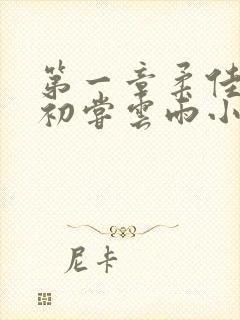 第一章柔佳
初尝雲雨小
尼卡